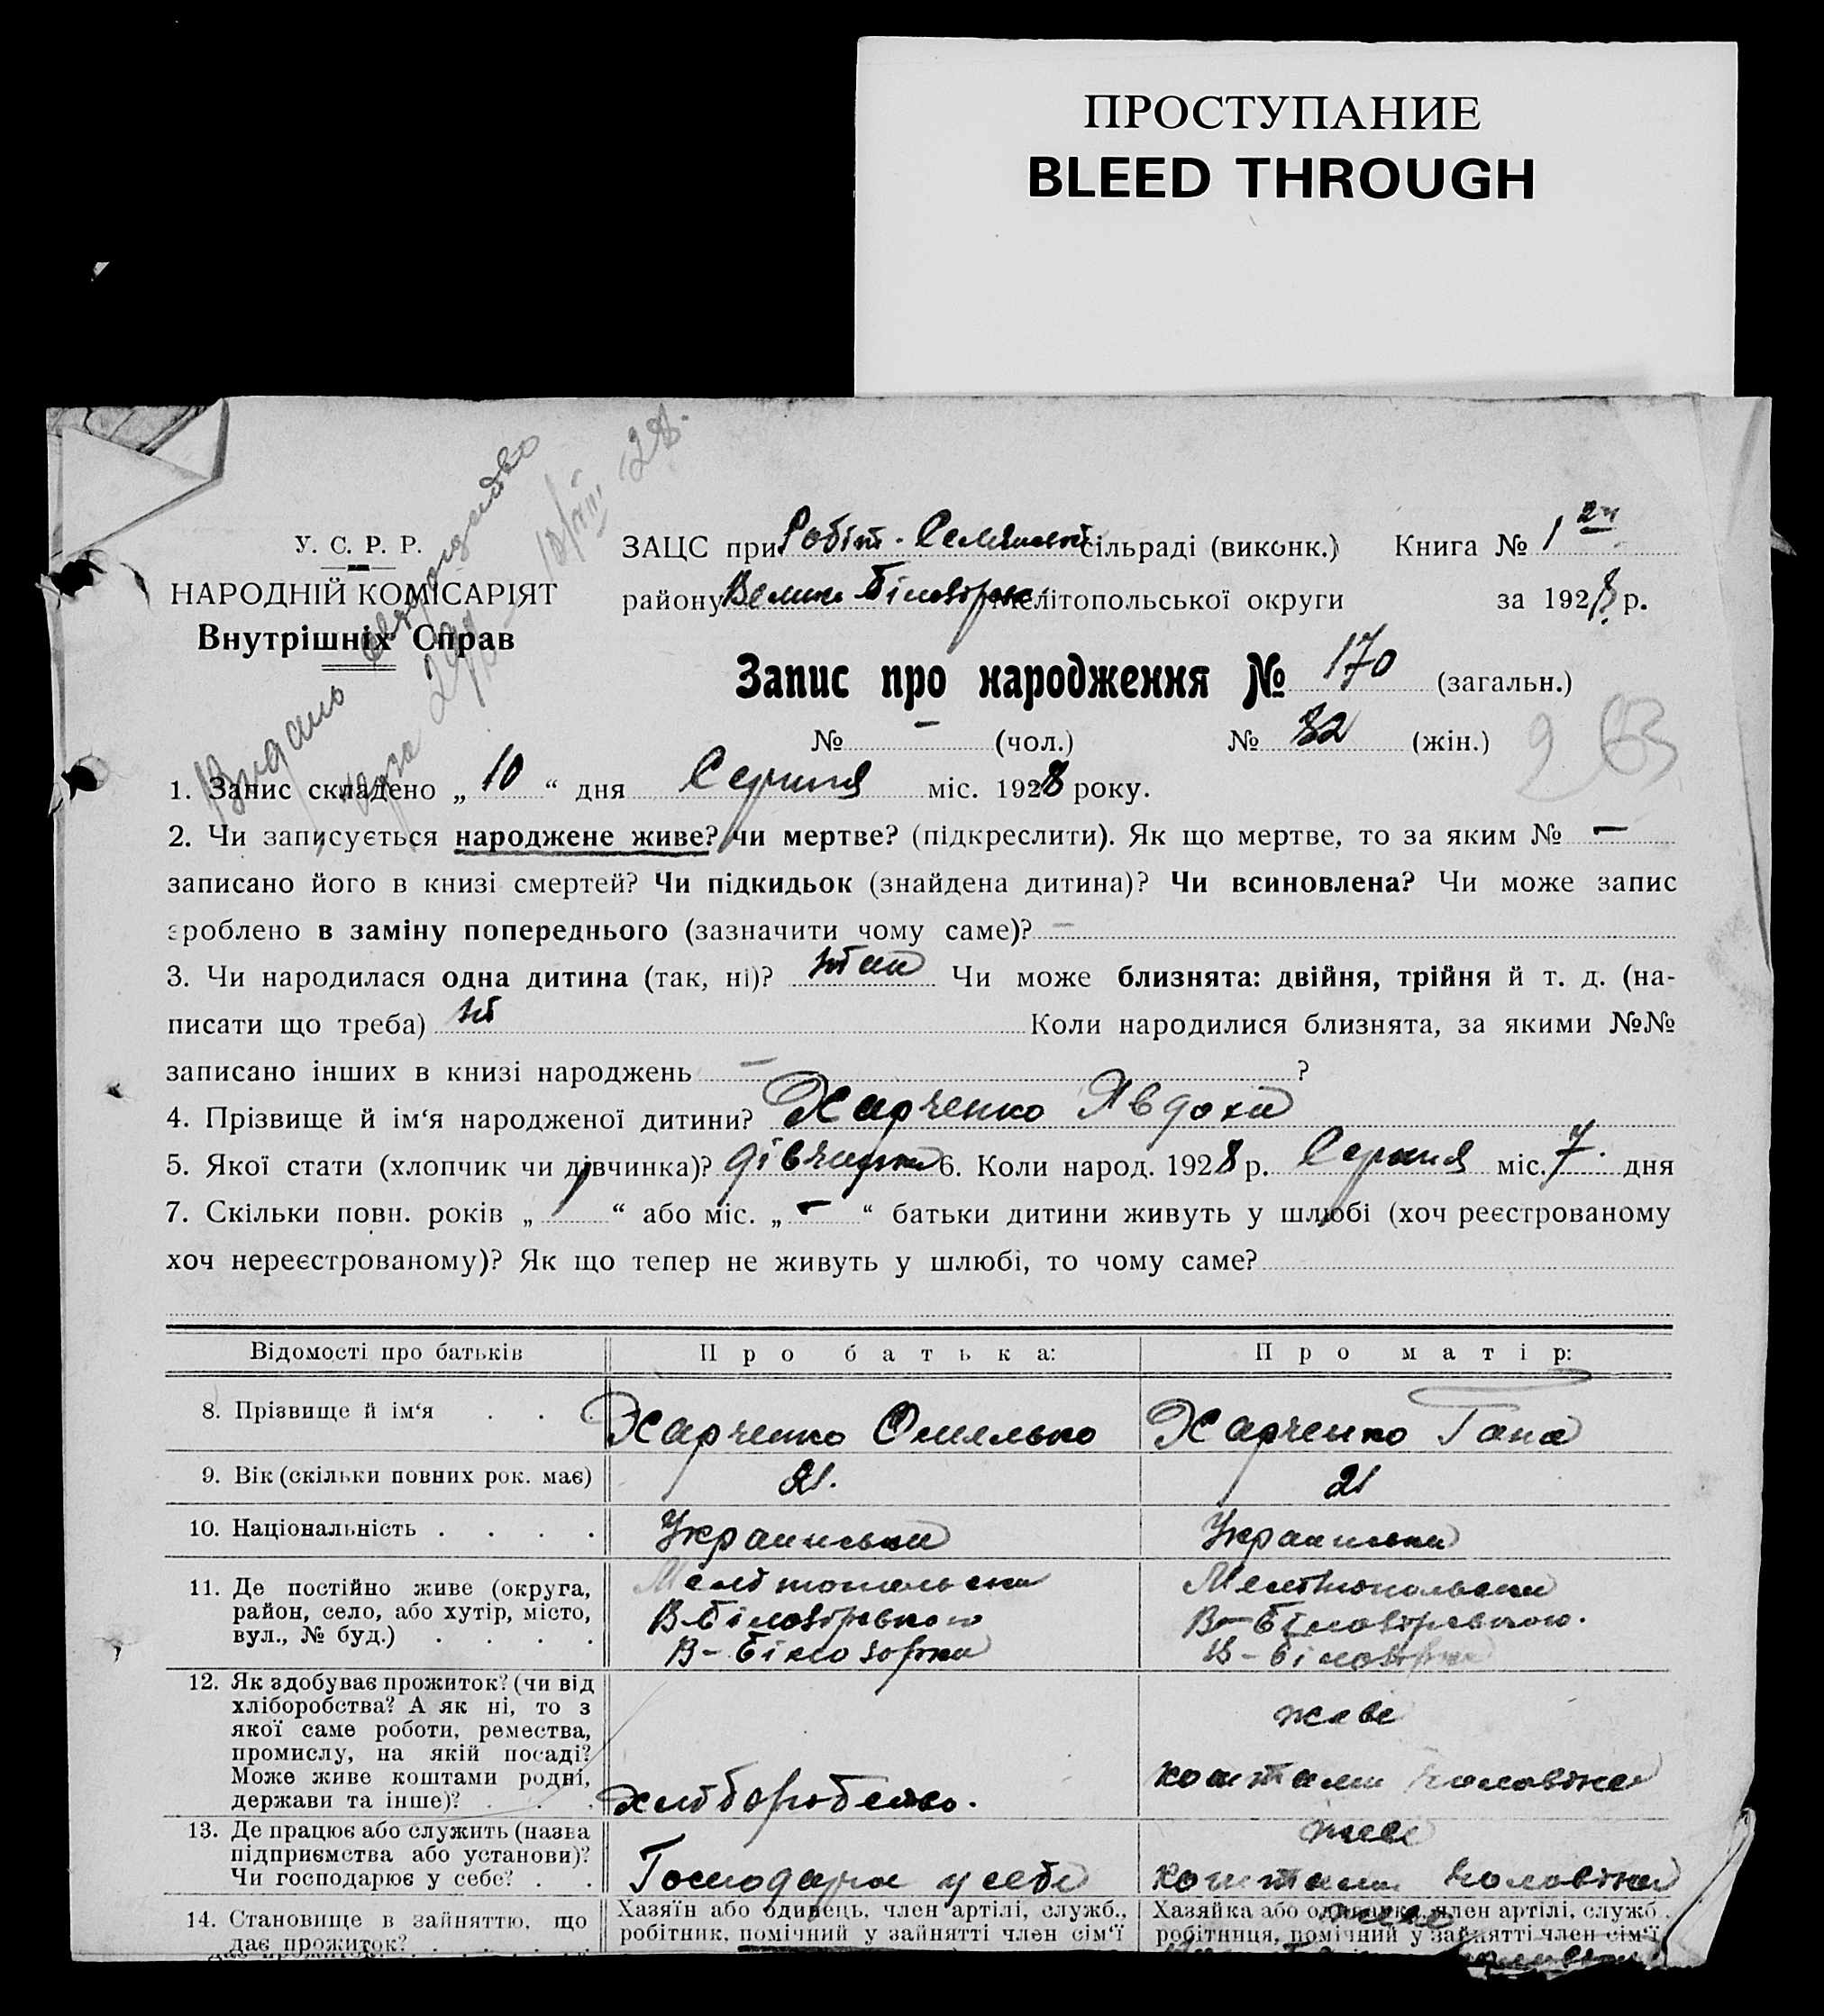 ПРОСТУПАНИЕ
BLEED THROUGH
Видано
28.
У. С. Р. Р.
НАРОДНІЙ КОМІСАРІЯТ
Внутрішніх Справ
ЗАЦС при Робіт. сільраді (виконк.) Книга № 1
району Велико Білозірськ Мелітопольської округи за 1928 р.
Запис про народження № 170 (загальн.)
№ – (чол.) № 82 (жін.)
263
1. Запис складено „ 10 “ дня Серпня міс. 1928 року.
2. Чи записується народжене живе? чи мертве? (підкреслити). Як що мертве, то за яким № –
записано його в книзі смертей? Чи підкидьок (знайдена дитина)? Чи всиновлена? Чи може запис
зроблено в заміну попереднього (зазначити чому саме)? –
3. Чи народилася одна дитина (так, ні)? Чи може близнята: двійня, трійня й т. д. (на-
писати що треба) ні Коли народилися близнята, за якими №№
записано інших в книзі народжень – ?
4. Прізвище й ім‘я народженої дитини? Харченко Явдоха
5. Якої стати (хлопчик чи дівчинка)? дівчинка 6. Коли народ. 1928 р. Серпня міс. 7. дня
7. Скільки повн. років „ 1 “ або міс. „ – “ батьки дитини живуть у шлюбі (хоч реєстрованому
хоч нереєстрованому)? Як що тепер не живуть у шлюбі, то чому саме?
Відомості про батьків Про батька: Про матір:
8. Прізвище й ім‘я . . Харченко Омелько Харченко Гана
9. Вік (скільки повних рок. має) 21. 21
10. Національність . . . . Украинська Украинська
11. Де постійно живе (округа, Мелітопольска Мелітопольска
район, село, або хутір, місто, В-Білозіревкою В-Білозіревкою.
вул., № буд.) . . . . В-Білозорка В-Білозорка
12. Як здобуває прожиток? (чи від
хліборобства? А як ні, то з
якої саме роботи, ремества, живе
промислу, на якій посаді?
Може живе коштами родні, коштами чоловіка
держави та інше)? . . . хліборобство.
13. Де працює або служить (назва живе
підприємства або установи)?
Чи господарює у себе? . . Господарює у себе коштами чоловіка
14. Становище в зайняттю, що Хазяїн або одинець, член артілі, служб., Хазяйка або одиначка, член артілі, служб.,
дає прожиток? робітник, помічний у зайнятті член сім‘ї робітниця, помічний у зайнятті член сім‘ї